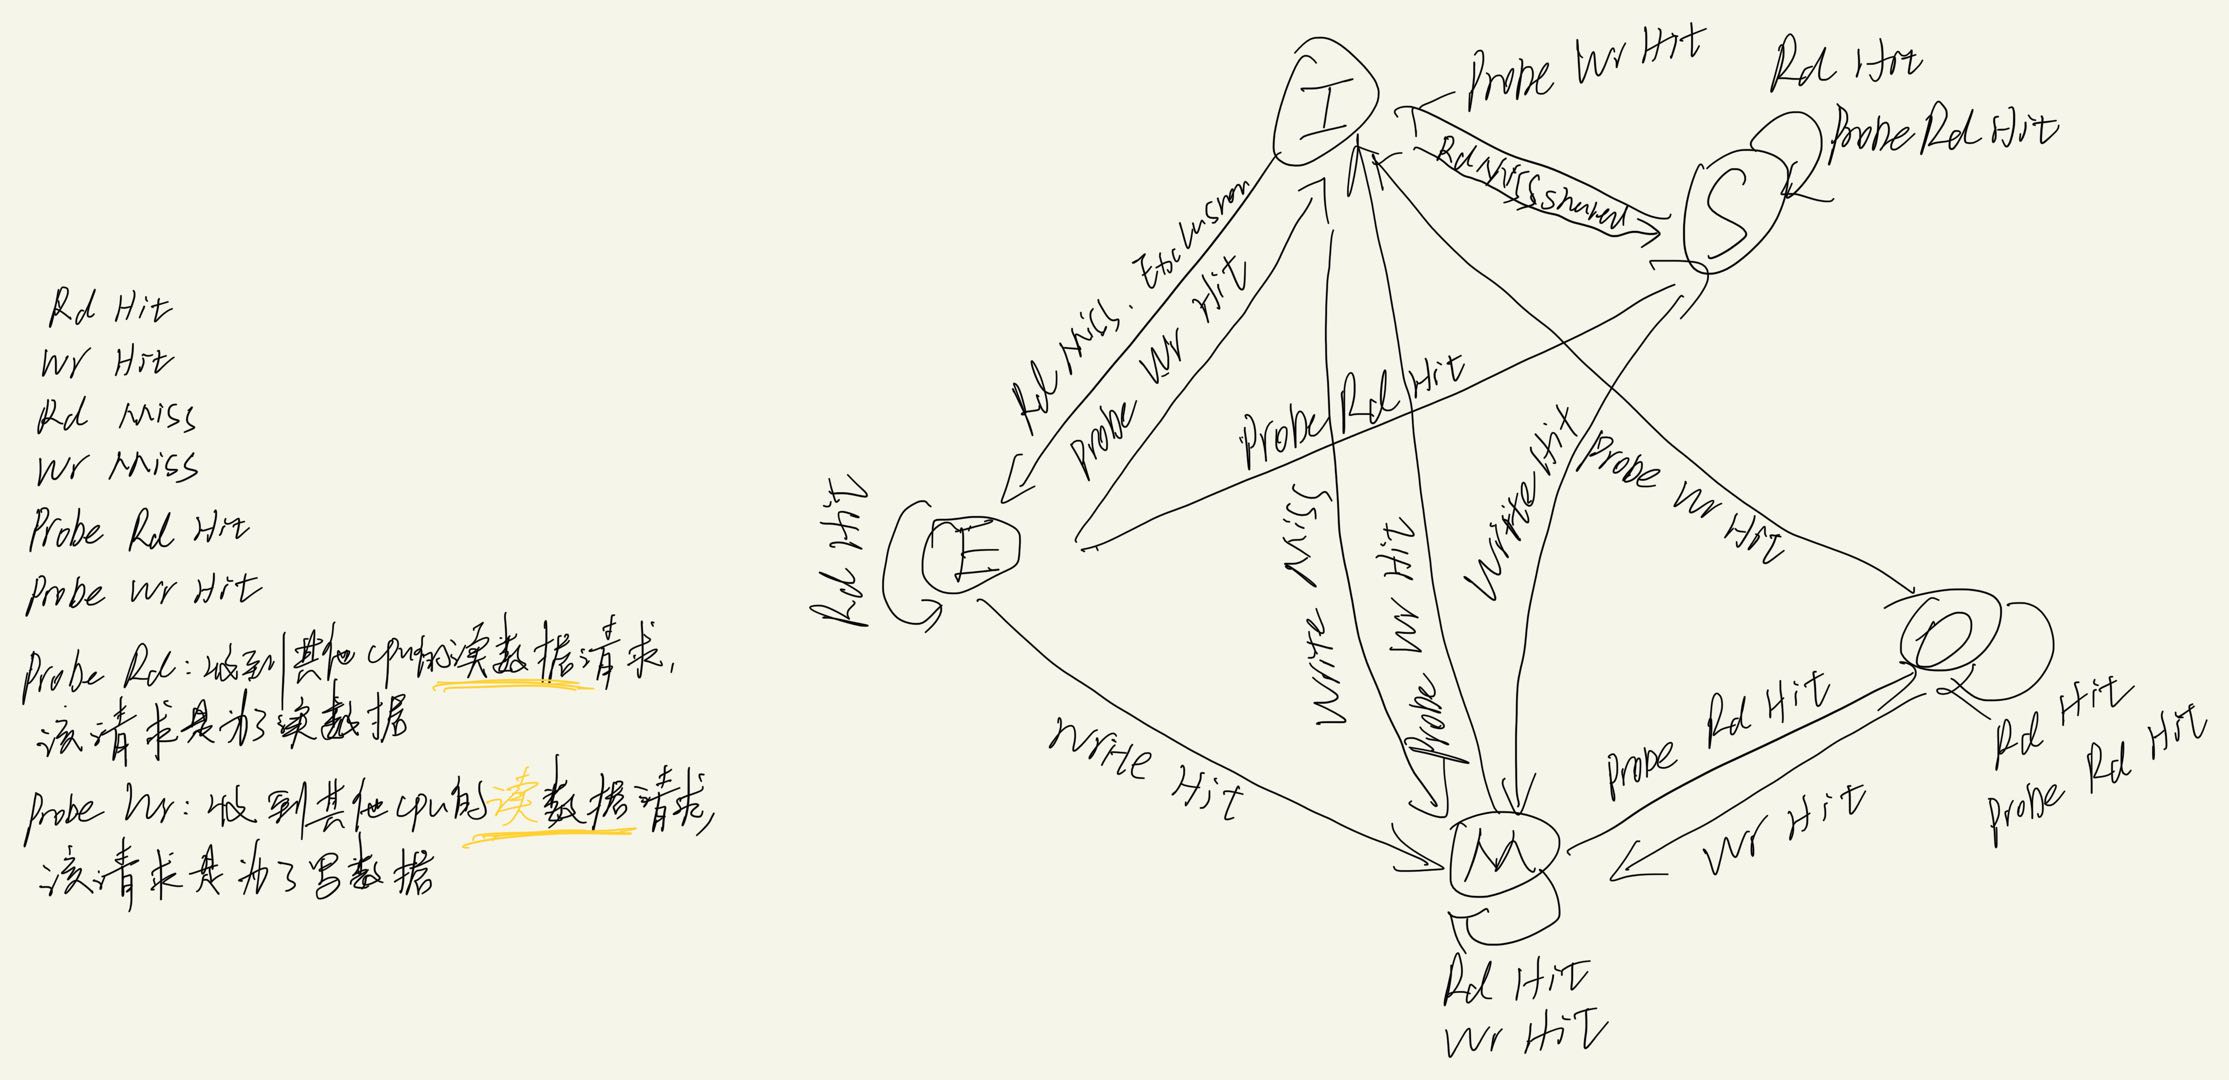 Rd Hit
Wr Hit
Rd Miss
Wr Miss
Probe Rd Hit
Probe Wr Hit
Probe Rd: 收到其他cpu的读数据请求,
该请求是为了读数据
Probe Wr: 收到其他cpu的读数据请求,
该请求是为了写数据
I
Probe Wr Hit
Rd Miss shared
Rd Hit
Probe Rd Hit
S
Rd Miss. Exclusion
Probe Wr Hit
Probe Rd Hit
Rd Hit
E
Write Miss
Probe Wr Hit
Write Hit
Probe Wr Hit
O
Rd Hit
Probe Rd Hit
Write Hit
Probe Rd Hit
Wr Hit
M
Rd Hit
Wr Hit